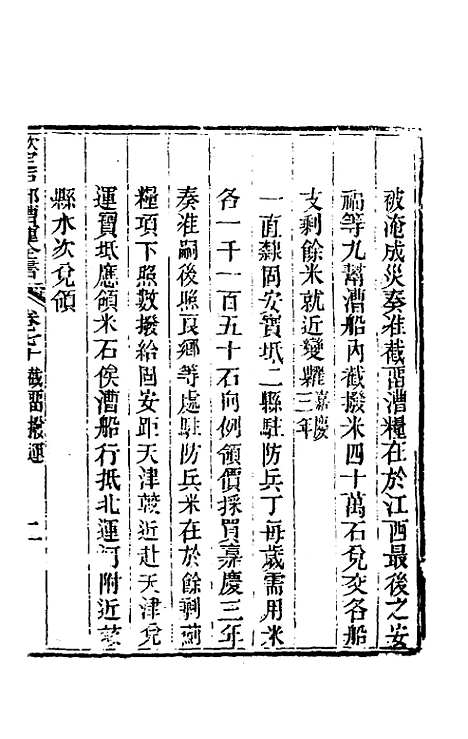 被淹成災奏准截畱漕糧在於江西最後之安
福等九幫漕船內截撥米四十萬石兌交各船
支剩餘米就近變糶嘉慶
三年
一直隸固安寶坻二縣駐防兵丁每歲需用米
各一千一百五十石向例領價採買嘉慶三年
奏准嗣後照良鄉等處駐防兵米在於餘剩薊
糧項下照數撥給固安距天津較近赴天津兌
運寶坻應領米石俟漕船行抵北運河附近該
縣水次兌領
欽定戶部漕運全書
卷七十 截畱撥運
二